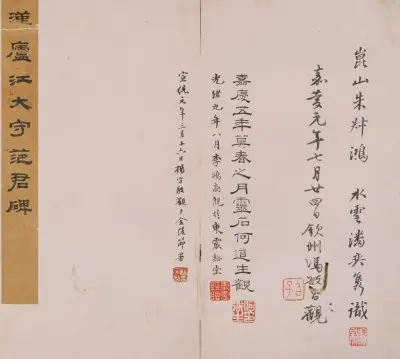 崑山朱 鴻 水雲潘奕雋識
嘉慶元年七月廿四日欽州馮敏昌觀
嘉慶五年莫春之月靈石何道生觀
光緒九年八月李鴻裔觀於東
宣統元年二月 六日楊守敬觀於金陵節署
漢廬江大守范君碑